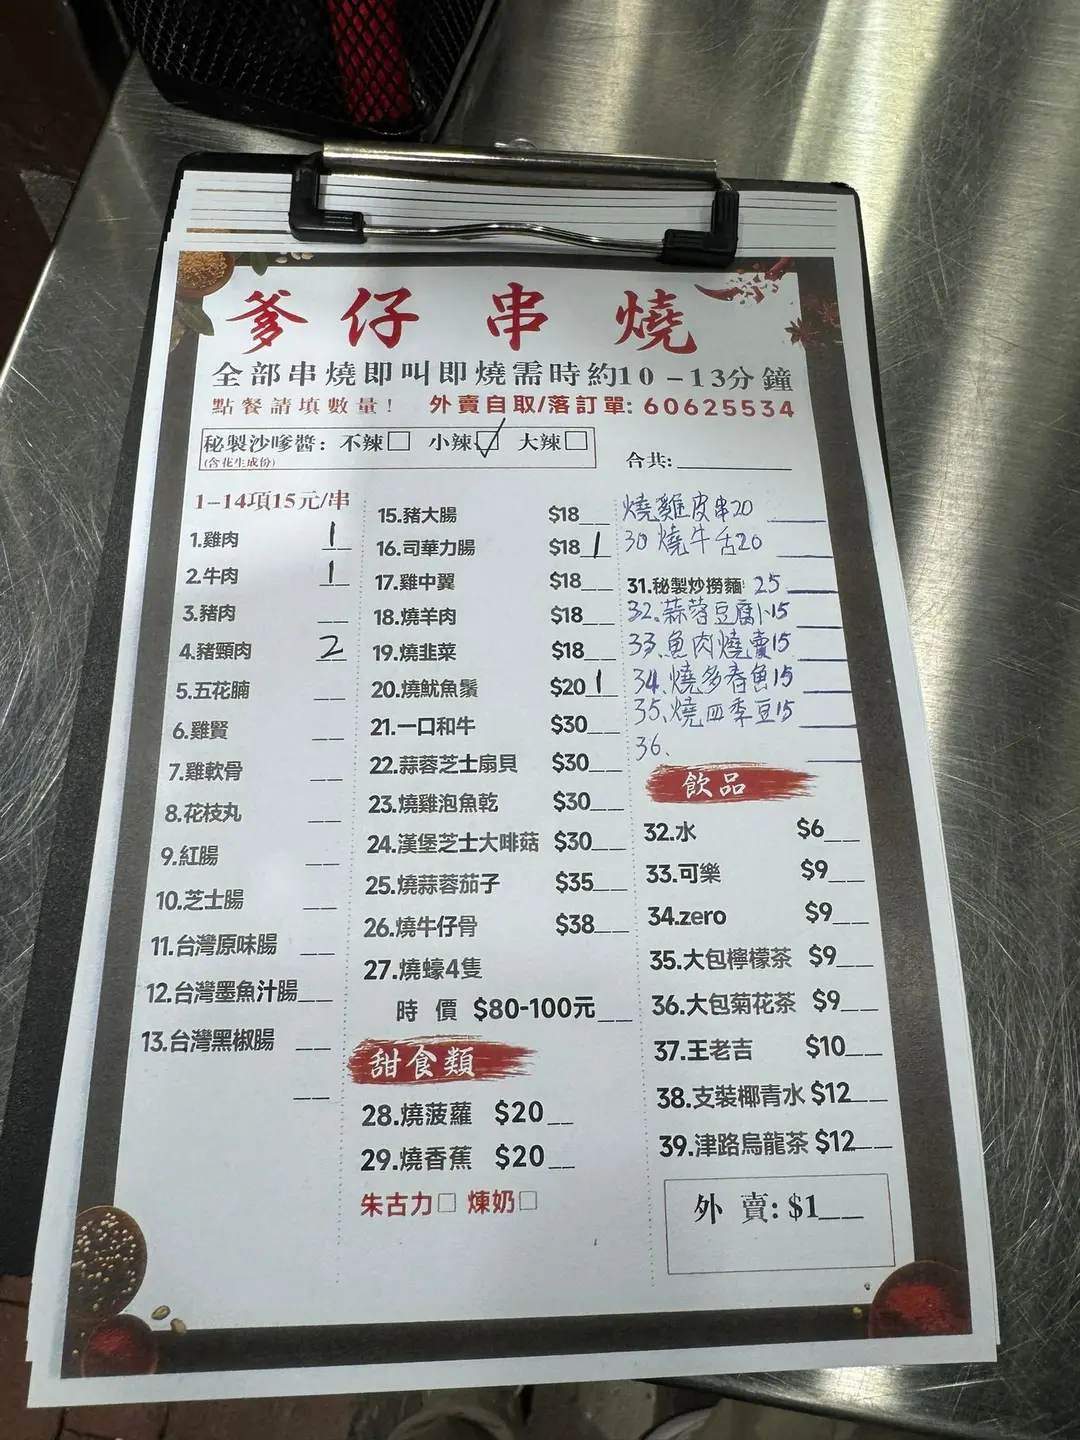 爹仔串燒
全部串燒即叫即燒需時約10-13分鐘
點餐請填數量! 外賣自取/落訂單: 60625534
秘製沙嗲醬: 不辣□ 小辣☑ 大辣□
(含花生成份)
合共:
1-14項15元/串
1.雞肉 1
2.牛肉 1
3.豬肉
4.豬頸肉 2
5.五花腩
6.雞腎
7.雞軟骨
8.花枝丸
9.紅腸
10.芝士腸
11.台灣原味腸
12.台灣墨魚汁腸
13.台灣黑椒腸
15.豬大腸 $18
16.司華力腸 $18 1
17.雞中翼 $18
18.燒羊肉 $18
19.燒韭菜 $18
20.燒魷魚鬚 $20 1
21.一口和牛 $30
22.蒜蓉芝士扇貝 $30
23.燒雞泡魚乾 $30
24.漢堡芝士大啡菇 $30
25.燒蒜蓉茄子 $35
26.燒牛仔骨 $38
27.燒蠔4隻
時價 $80-100元
甜食類
28.燒菠蘿 $20
29.燒香蕉 $20
朱古力□ 煉奶□
燒雞皮串20
30 燒牛舌20
31.秘製炒撈麵 25
32.蒜蓉豆腐卜15
33.魚肉燒賣15
34.燒多春魚15
35.燒四季豆15
36.
飲品
32.水 $6
33.可樂 $9
34.zero $9
35.大包檸檬茶 $9
36.大包菊花茶 $9
37.王老吉 $10
38.支裝椰青水 $12
39.津路烏龍茶 $12
外賣: $1